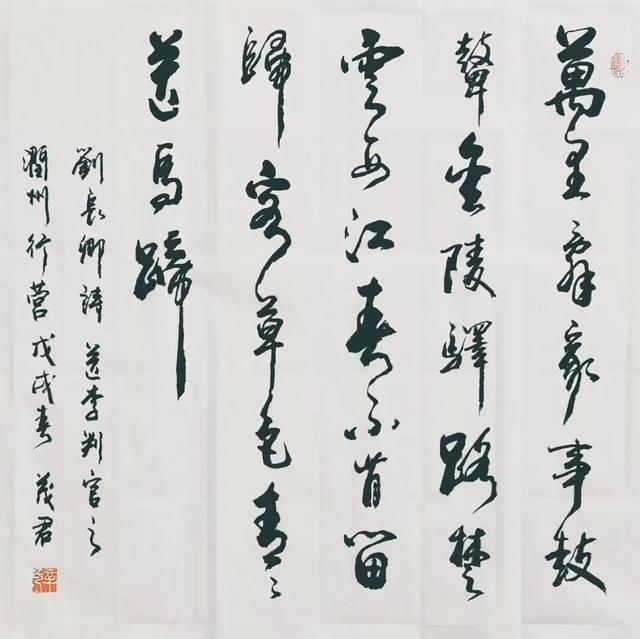 萬里辭家事鼓
鼙金陵驛路楚
雲西江春不肯留
歸客草色青々
送馬蹄
劉長卿詩 送李判官之
潤州行營 戊戌春 茂君